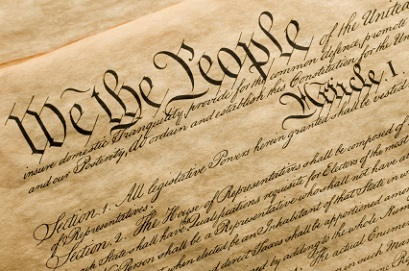 We the People of the United
insure domestic Tranquility, provide for the common defence, promote
and our Posterity, do ordain and establish this Constitution for the Uni
Article. I.
Section. 1. All legislative Powers herein granted shall be vested
of Representatives.
Section. 2. The House of Representatives shall be composed of
each State shall have Qualifications requisite for Electors of the most
Person shall be a Representative who shall not have
when elected, be an Inhabitant of that State in
direct Taxes shall be apportioned among
by adding to the whole Num
The actual Enumer